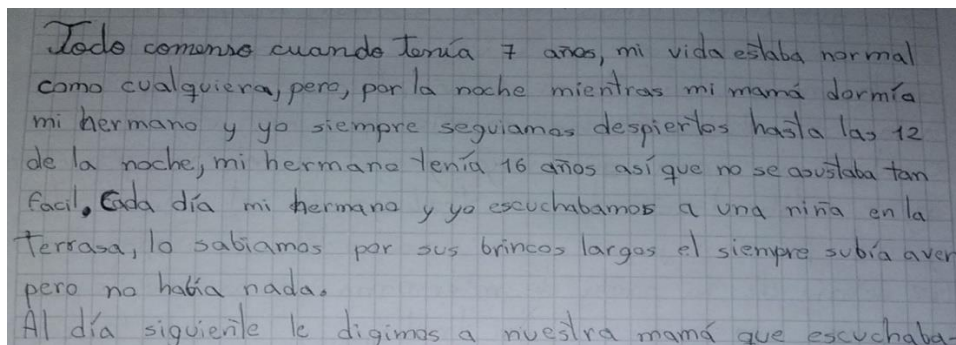 Todo comenso cuando tenía 7 años, mi vida estaba normal
como cualquiera, pero, por la noche mientras mi mamá dormía
mi hermano y yo siempre seguiamos despiertos hasta las 12
de la noche, mi hermano tenía 16 años así que no se asustaba tan
facil. Cada día mi hermano y yo escuchabamos a una niña en la
terrasa, lo sabiamos por sus brincos largos el siempre subía aver
pero no había nada.
Al día siguiente le digimos a nuestra mamá que escuchaba-